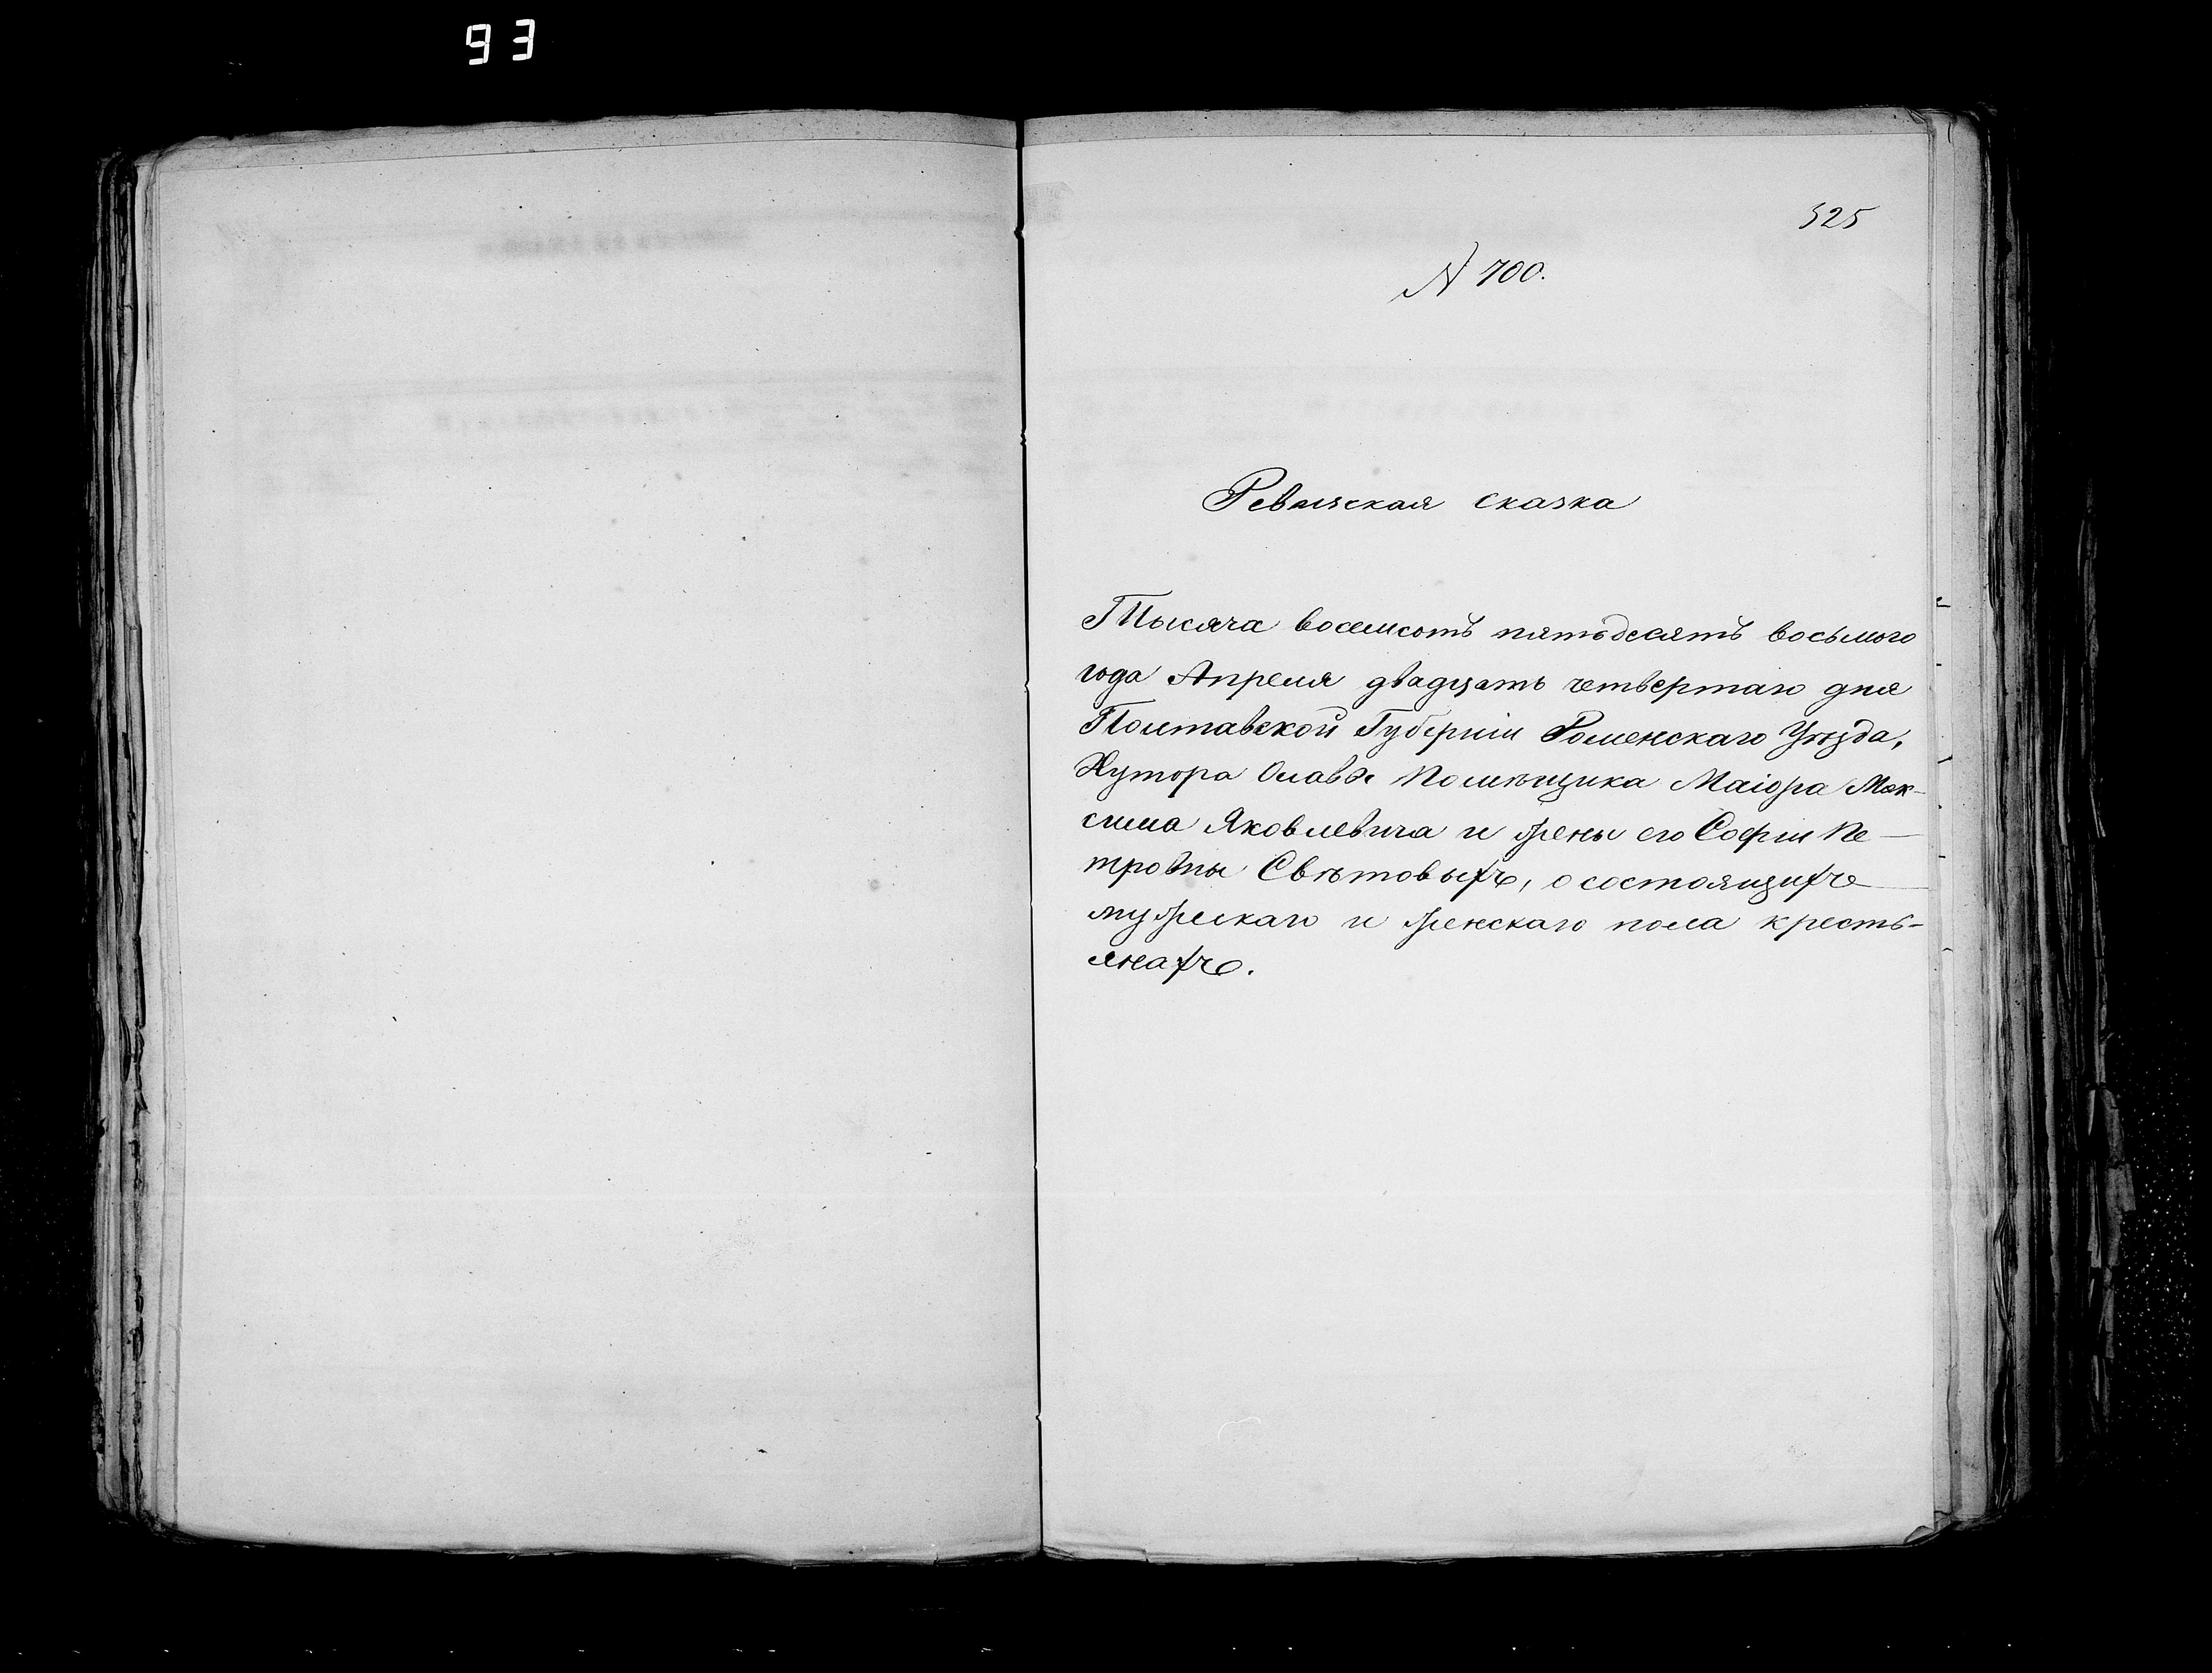 93
525
№ 700.
Ревизская сказка
Тысяча восемсотъ пятьдесятъ восьмого
года Апреля двадцать четвертаго дня
Полтавской Губерніи Роменскаго Уѣзда,
Хутора Помѣщика Маіора Мак-
сима Яковлевича и жены его Софіи Пе-
тровны Свѣтовыхъ, о состоящихъ
мужескаго и женскаго пола кресть-
янахъ.